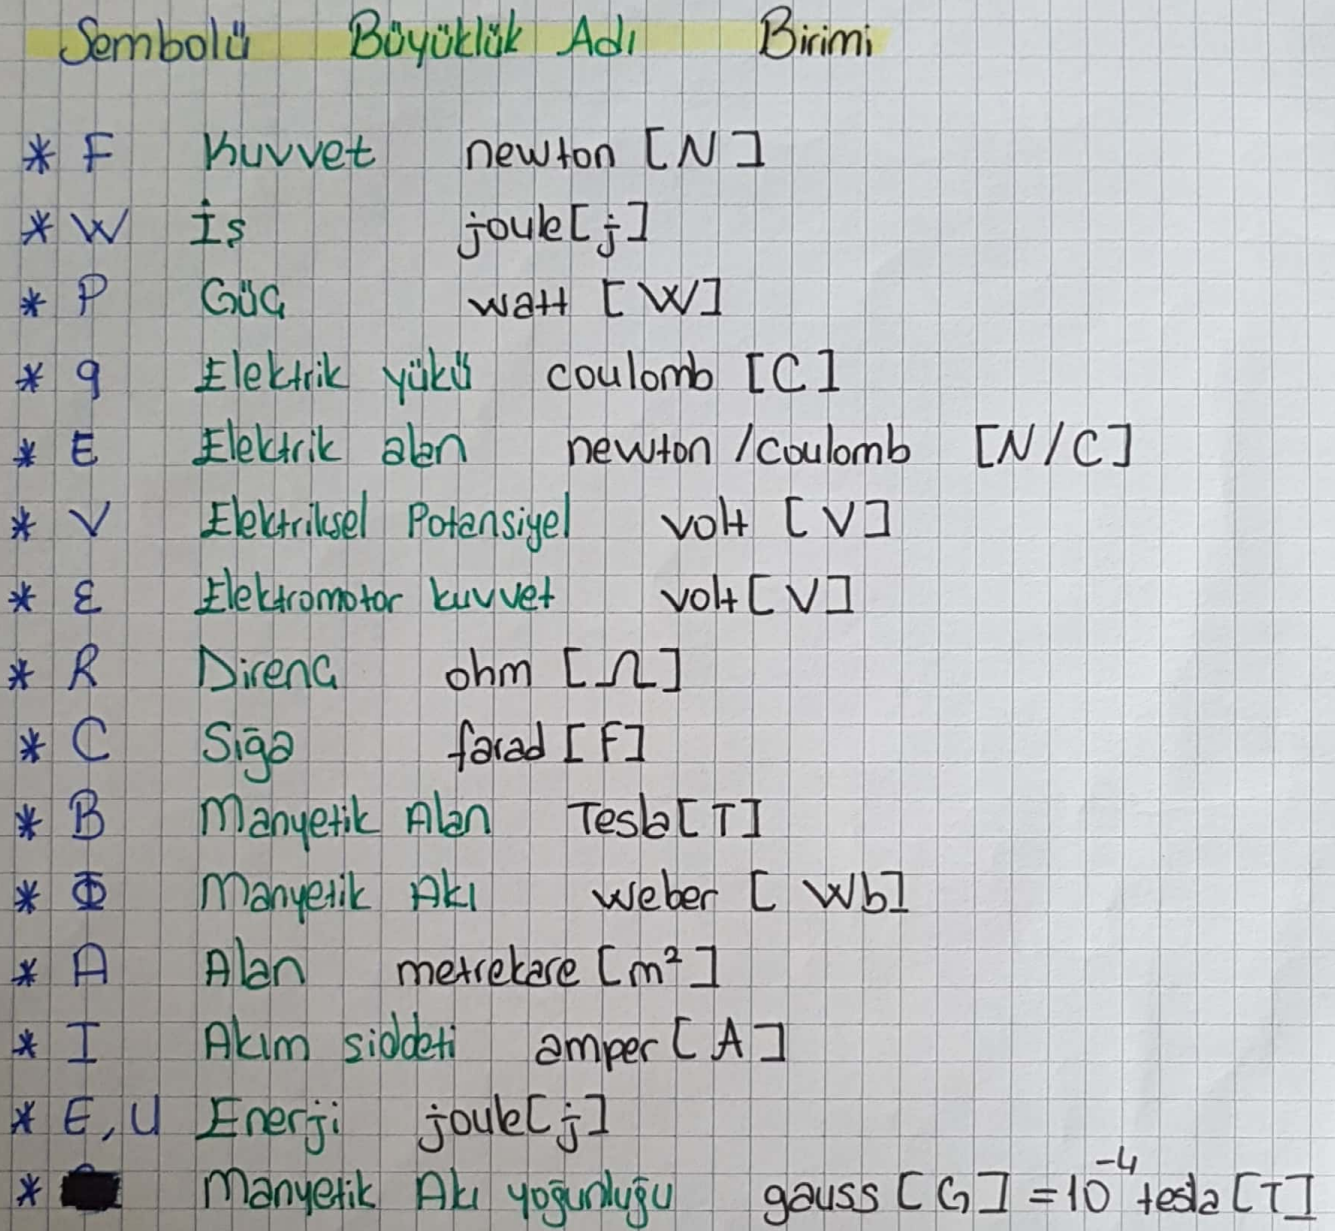 Sembolü Büyüklük Adı Birimi
* F Kuvvet newton [N]
* W İş joule[j]
* P Güç watt [W]
* q Elektrik yükü coulomb [C]
* E Elektrik alan newton/coulomb [N/C]
* V Elektriksel Potansiyel volt [V]
* ε Elektromotor kuvvet volt[V]
* R Direnç ohm [Ω]
* C Sığa farad [F]
* B Manyetik Alan Tesla[T]
* Φ Manyetik Akı weber [Wb]
* A Alan metrekare [m²]
* I Akım siddeti amper [A]
* E, U Enerji joule[j]
* Manyetik Akı yoğunluğu gauss [G] = 10⁻⁴ tesla [T]